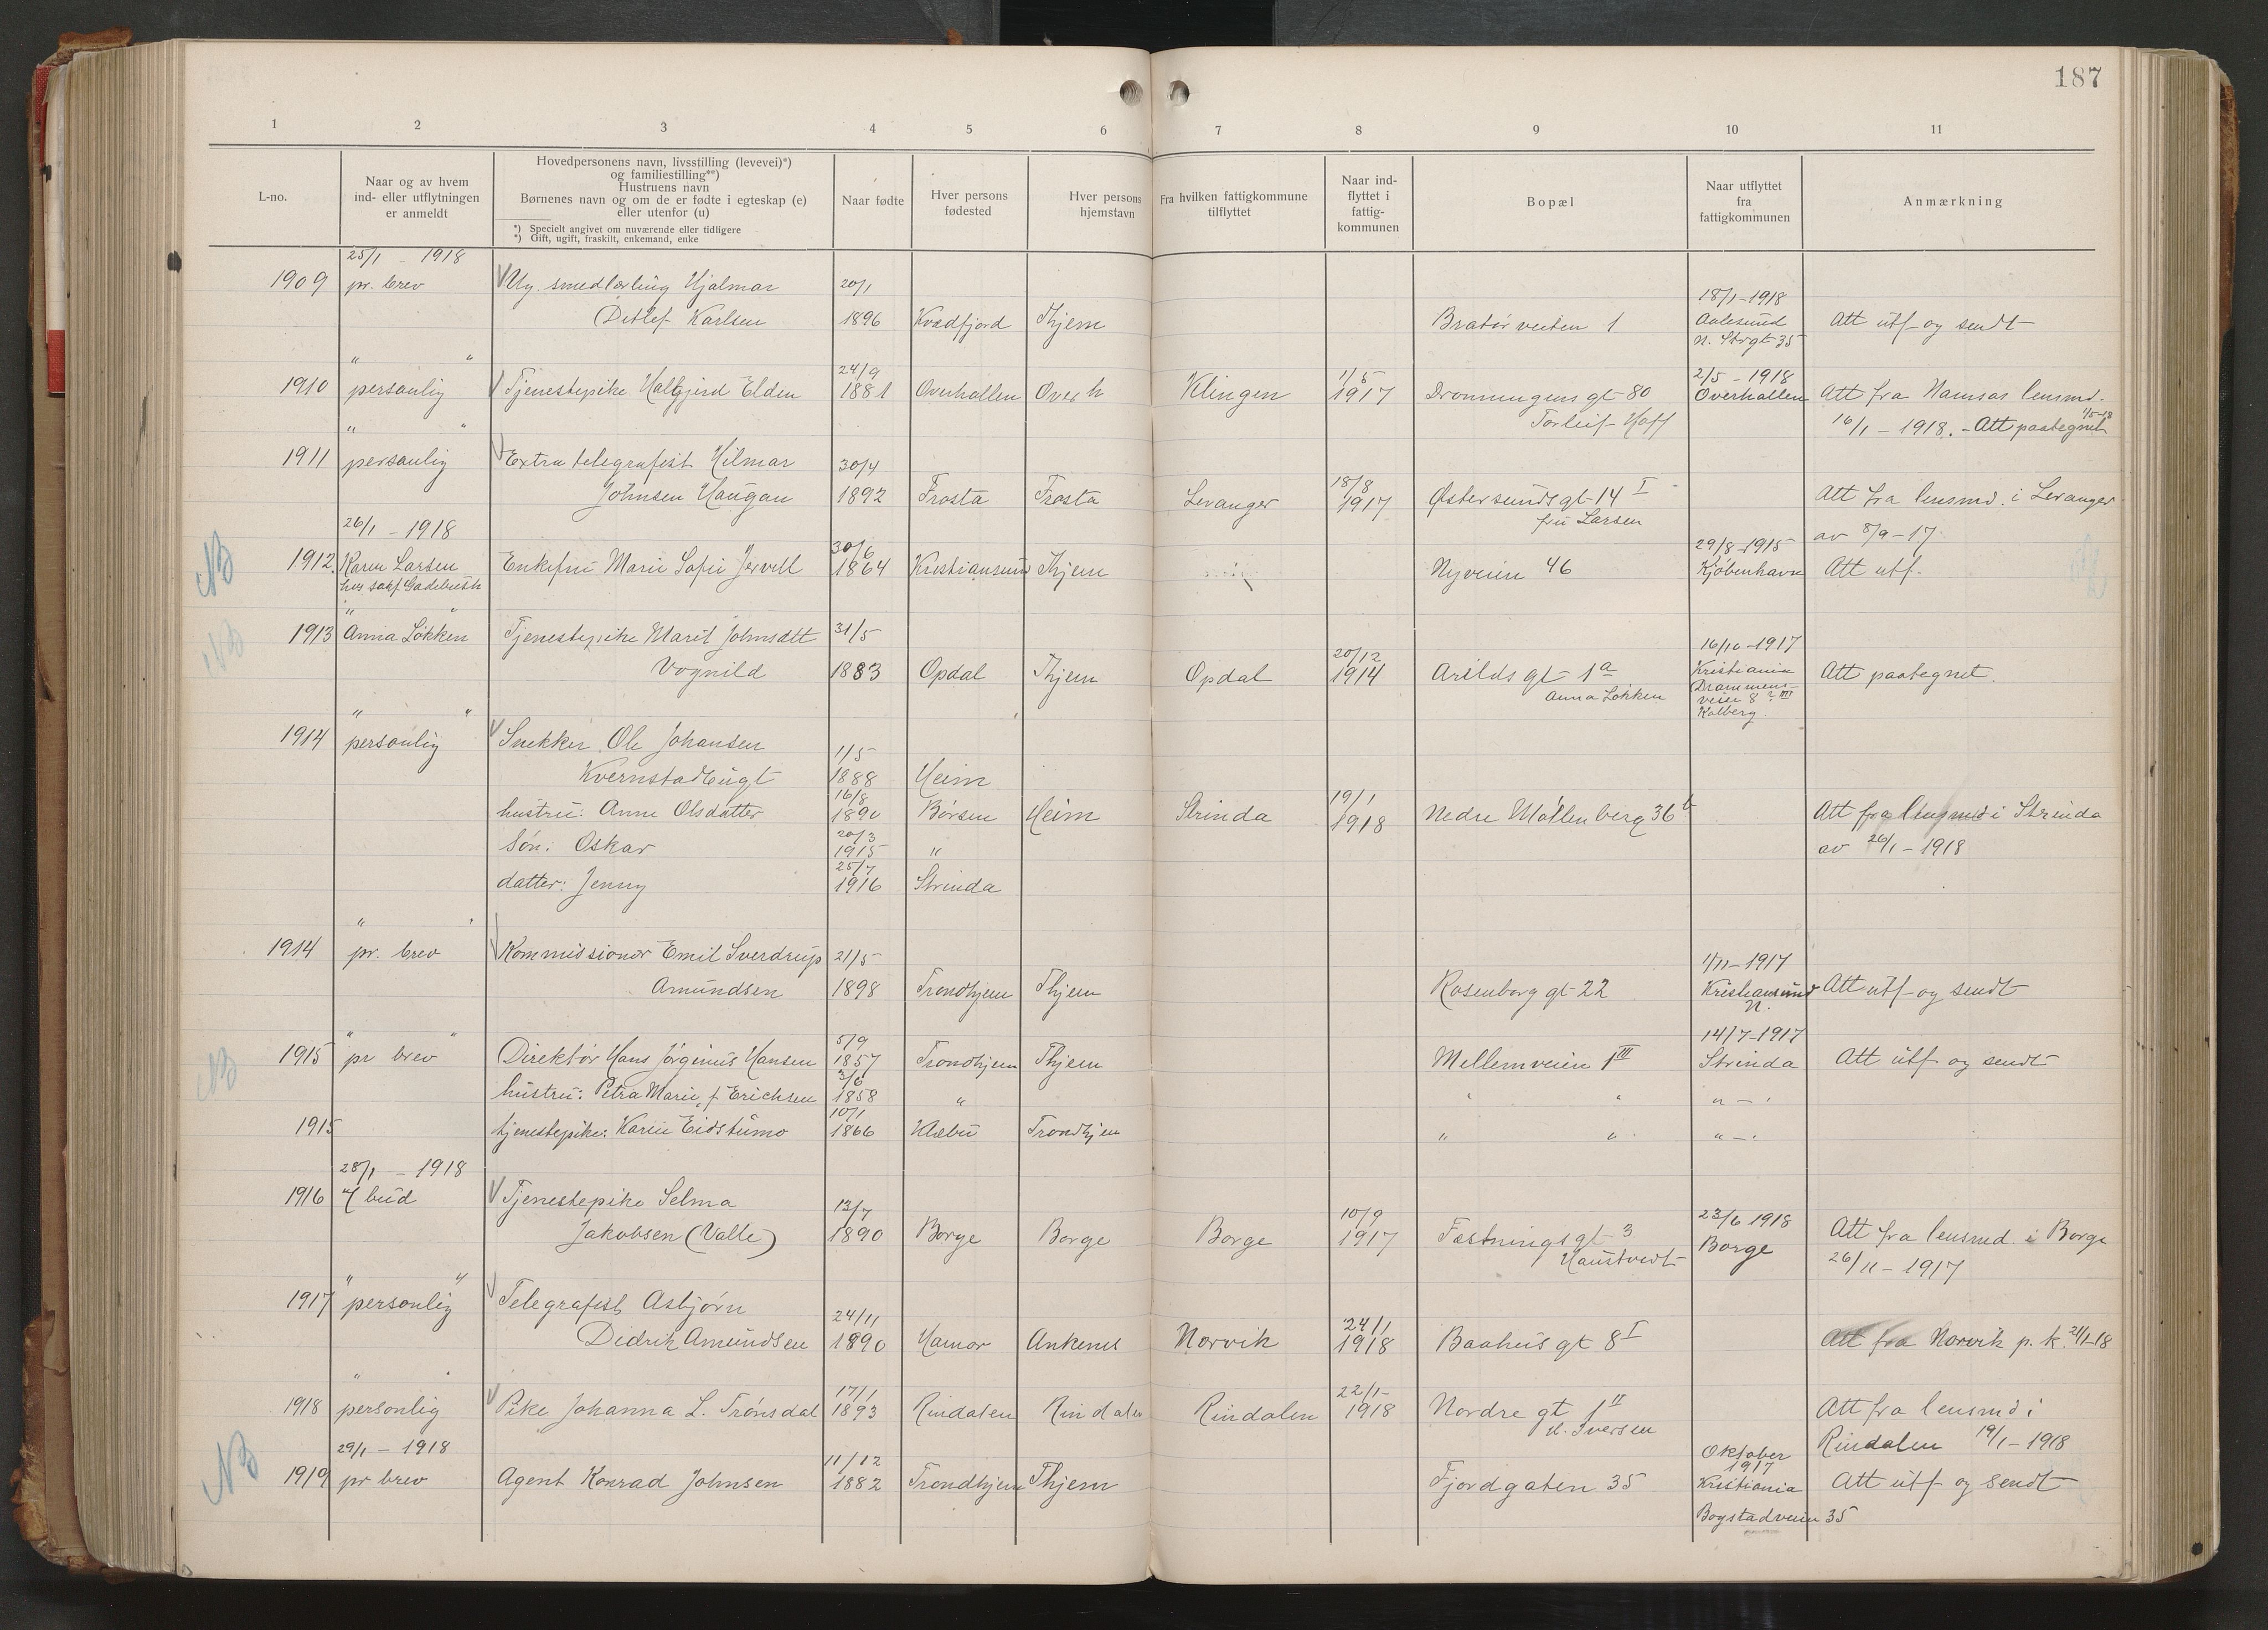 187
1 2 3 4 5 6 7 8 9 10 11
L-no.
Naar og av hvem
ind- eller utflytningen
er anmeldt
Hovedpersonens navn, livsstilling (levevei)*)
og familiestilling**)
Hustruens navn
Børnenes navn og om de er fødte i egteskap (e)
eller utenfor (u)
*) Specielt angivet om nuværende eller tidligere
*) Gift, ugift, fraskilt, enkemand, enke
Naar fødte
Hver persons
fødested
Hver persons
hjemstavn
Fra hvilken fattigkommune
tilflyttet
Naar ind-
flyttet i
fattig-
kommunen
Bopæl
Naar utflyttet
fra
fattigkommunen
Anmærkning
25/1 - 1918
1909 pr. brev Ug. smedlærling Hjalmar 20/1 18/1-1918
Detlef Karlsen 1896 Kvædfjord Thjem Bratørveiten 1 Aalesund Att utf og sendt
N. Strgt 35
" "
24/9 1/5 2/5 - 1918
1910 personlig Tjenestepike Halgjerd Elden 1881 Overhallen Overh Klingen 1917 Dronningensgt 80 Overhallen Att fra Namsos lensmd.
" " Torleif Hoff 16/1 - 1918. - Att paategnet 1/5-18
1911 personlig Extra telegrafist Hilmar 30/4
Johnsen Haugan 1892 Frosta Frosta Levanger 18/8 1917 Østersundsgt 14 I Att fra lensmd. i Levanger
fru Larsen av 8/9-17.
26/1 - 1918
NB 1912. Karen Larsen Enkefru Marie Sofie Jervell 30/6 1864 Kristiansund Thjem Nyveien 46 29/8-1915 Kjøbenhavn Att utf.
hos sakf. Gadebusch
" "
NB 1913 Anna Løkken Tjenestepike Marit Johnsdtt 31/5 16/10-1917
Vognild 1883 Opdal Thjem Opdal 20/12 1914 Arildsgt 1a Kristiania Att paategnet.
Anna Løkken Drammens-
veien 8 III
Kolberg.
" "
1914 personlig Snekker Ole Johansen 1/5
Kvernstadbugt 1888 Heim
hustru: Anne Olsdatter 16/8 1890 Børsen Heim Strinda 19/1 1918 Nedre Møllenberg 36 b Att fra lensmd i Strinda
søn: Oskar 20/3 1915 " av 26/1-1918
datter: Jenny 25/7 1916 Strinda
" "
1914 pr. brev Kommissionær Emil Sverdrup 21/5 1/11-1917
Amundsen 1898 Trondhjem Thjem Rosenborggt 22 Kristiansund N. Att utf og sendt
" "
NB 1915 pr brev Direktør Hans Jørginus Hansen 5/9 1857 Trondhjem Thjem Mellemveien 1 III 14/7-1917 Strinda Att utf og sendt
hustru: Petra Marie f Erichsen 3/6 1858 " " " " - "
1915 tjenestepike: Karen Eidstumo 10/1 1866 Klæbu Trondhjem " " " - "
28/1 - 1918
1916 v/ bud Tjenestepike Selma 13/7
Jakobsen (Valle) 1890 Borge Borge Borge 10/9 1917 Fæstningsgt 3 23/6 1918 Borge Att fra lensmd i Borge
Haustvedt 26/11-1917
" "
1917 personlig Telegrafist Asbjørn
Didrik Amundsen 24/11 1890 Hamar Ankenes Narvik 24/1 1918 Baahusgt 8 I Att fra Narvik p. k. 21/1-18
" "
1918 personlig Pike Johanna L. Trønsdal 17/1 1893 Rindalen Rindalen Rindalen 22/1- 1918 Nordre gt 1 II Att fra lensmd i
H. Iversen Rindalen 19/1-1918
29/1 - 1918
NB 1919 pr brev Agent Konrad Johnsen 11/12 1882 Trondhjem Thjem Fjordgaten 35 Oktober 1917 Kristiania Att utf og sendt
Bogstadveien 35